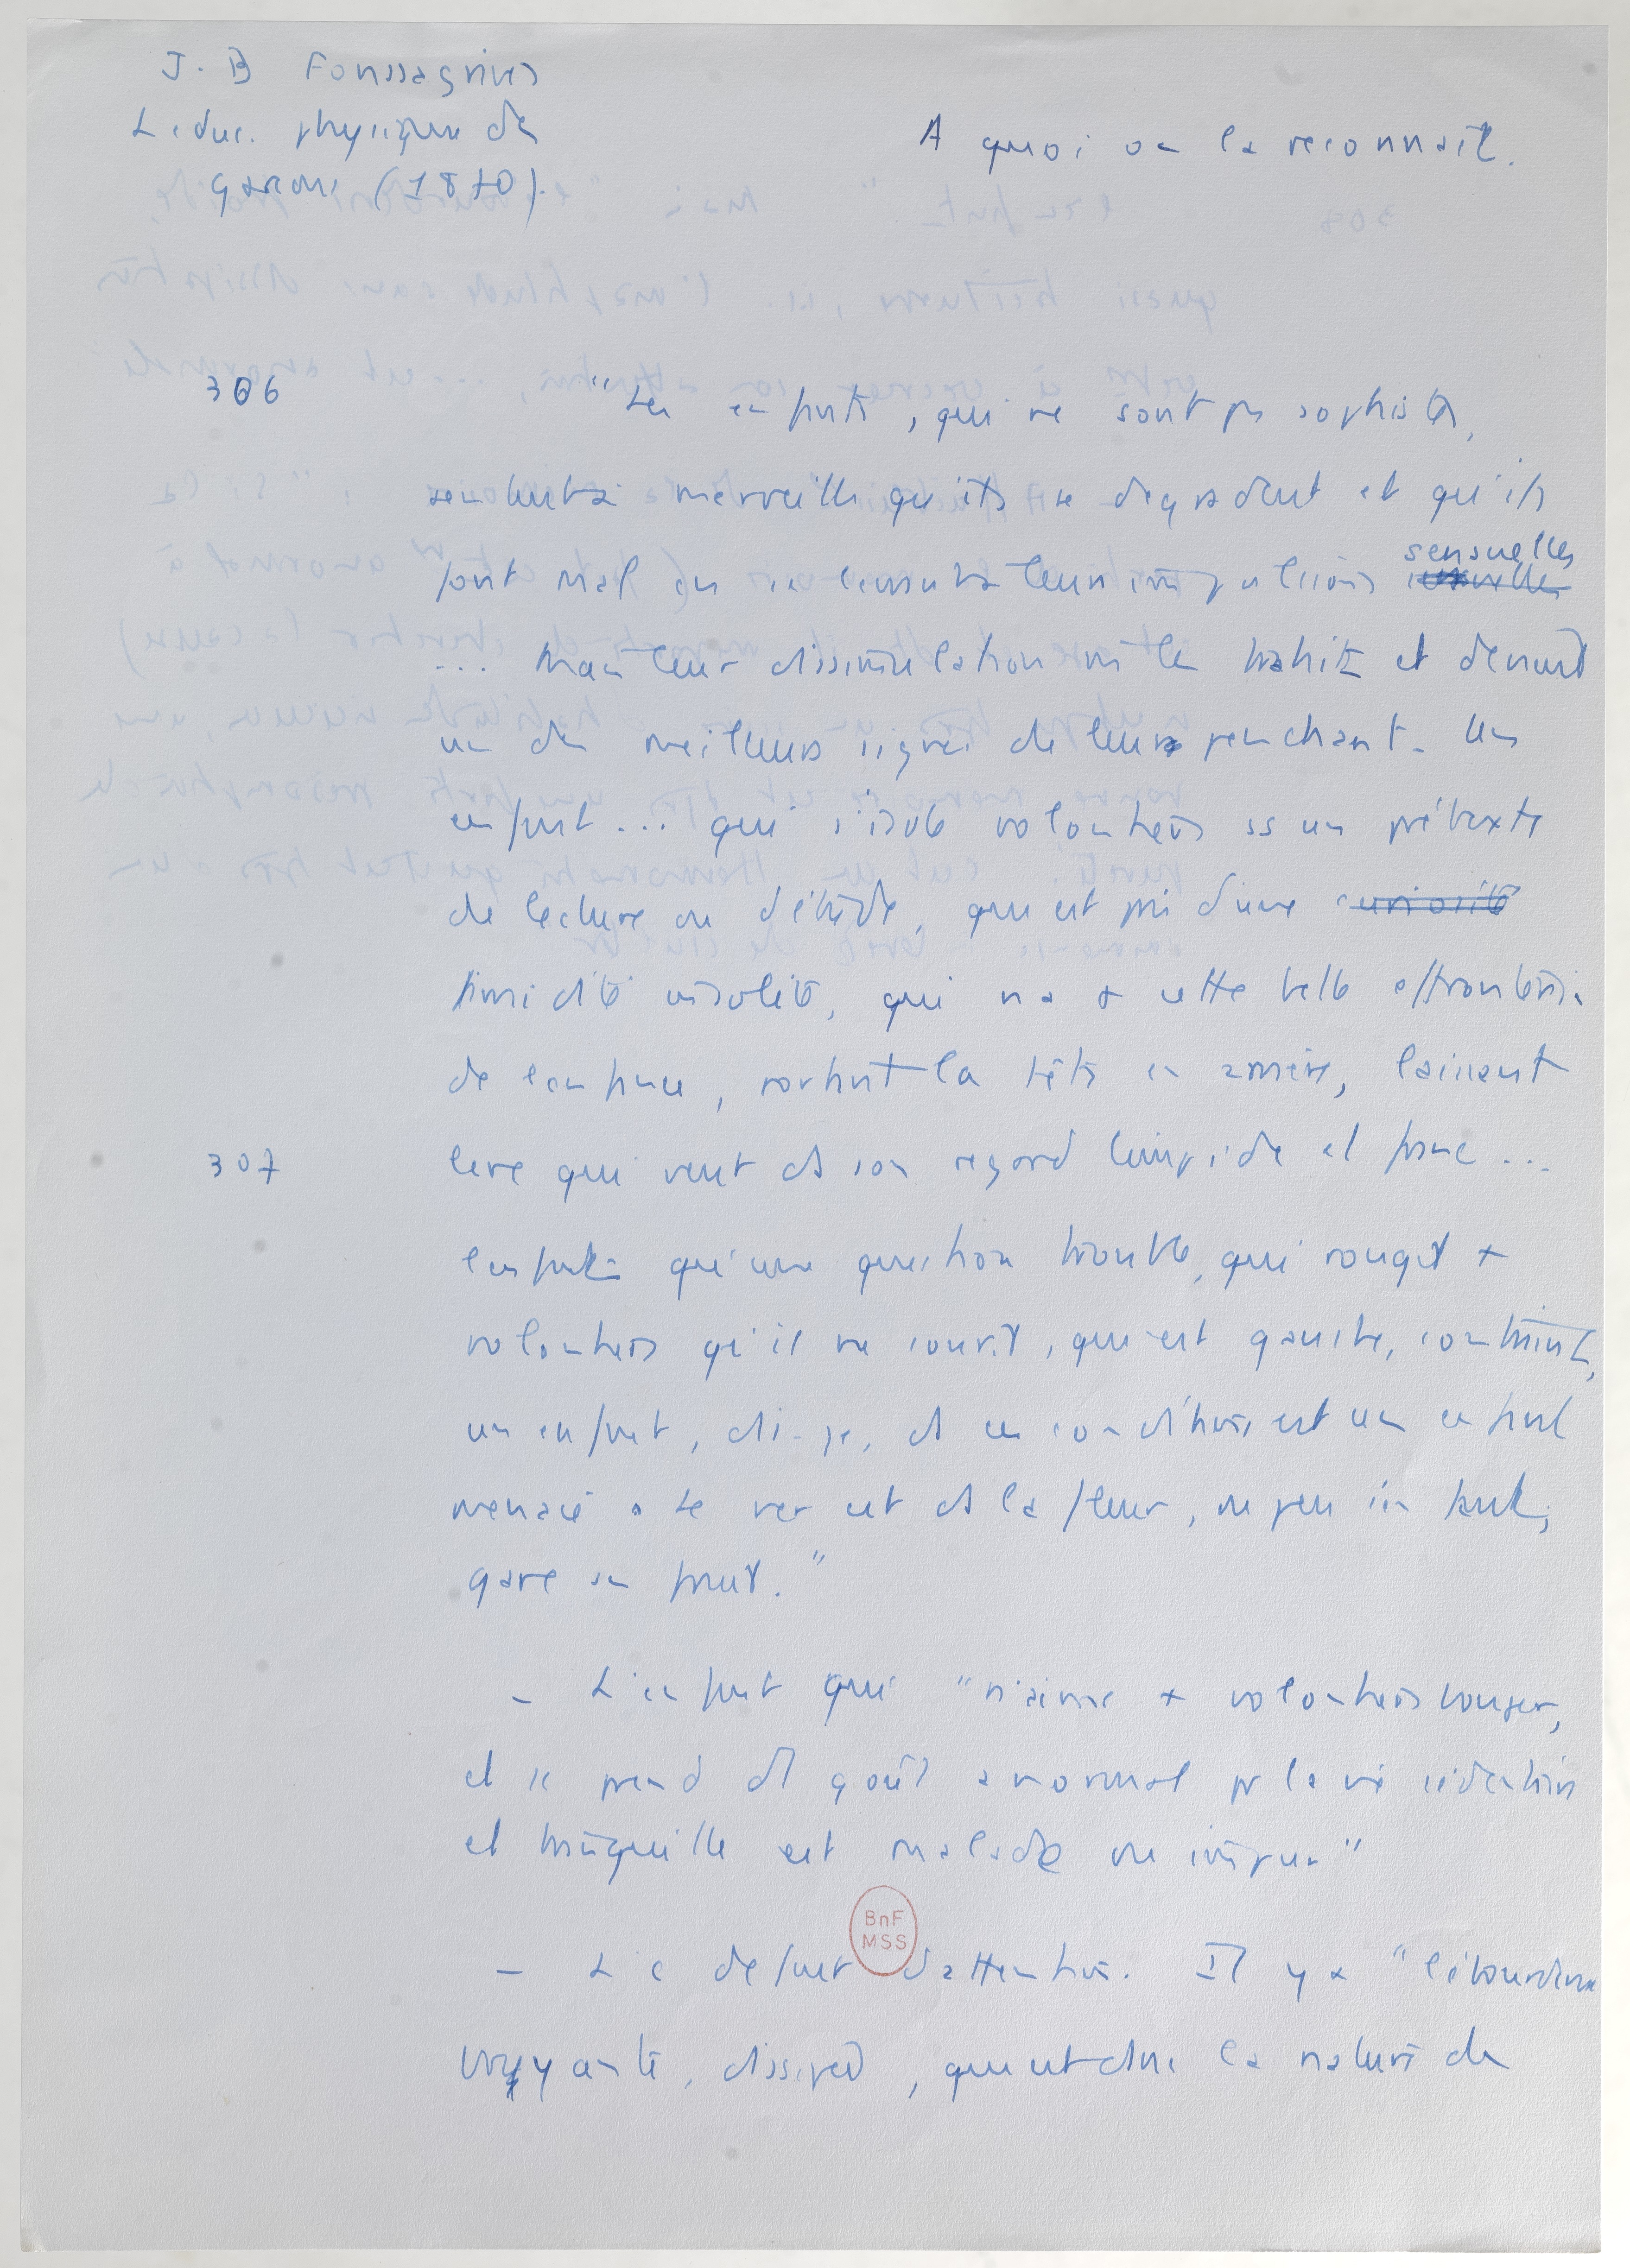 J. B Fonssagrives
L'educ. physique des
garçons (1870).
A quoi on la reconnait.
306 "Les enfants, qui ne sont pas sophistes,
sentent à merveille qu'ils se degradent et qu'ils
font mal en leurs impulsions sensuelles
... Mais leur dissimulation même les trahit et devient
un des meilleurs signes de leurs penchants. Un
enfant ... qui s'isole volontiers ss un prétexte
de lecture ou d'étude, qui est pris d'une curiosité
timidité insolite, qui n'a + cette belle effronterie
de l'enfance, portant la tête en arrière, laissant
307 lire qui veut ds son regard limpide et franc ...
l'enfant qu'une question trouble, qui rougit +
volontiers qu'il ne sourit, qui est gauche, contraint,
un enfant, dis-je, ds ces conditions est un enfant
menacé. Le ver est ds la fleur, ou peu s'en faut,
gare au fruit."
- L'enfant qui "n'aime + volontiers bouger,
et se prend d'1 goût anormal pr la vie sédentaire
et tranquille est malade ou impur"
- Le defaut d'attention. Il y a "l'étourderie
BnF
MSS
bruyante, dissipée, qui est ds la nature des